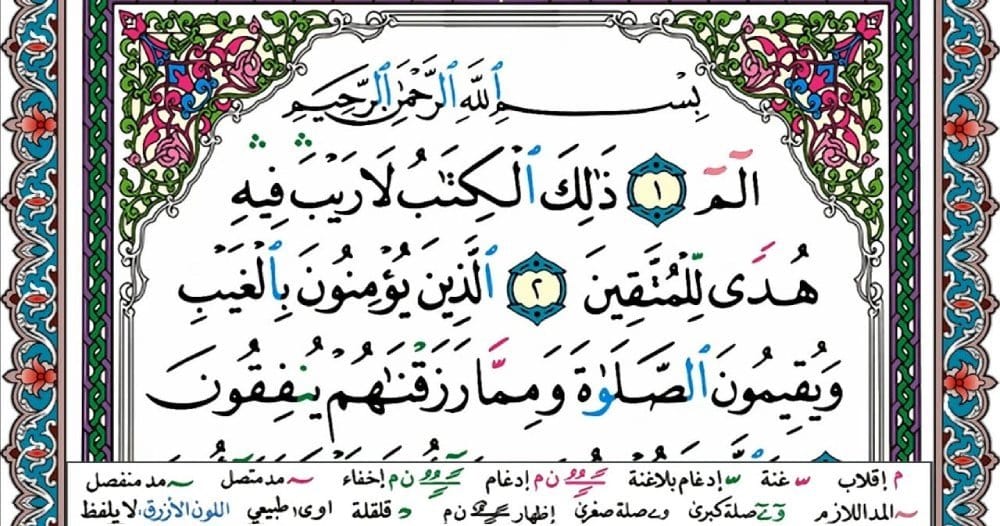 بِسْمِ ٱللَّهِ ٱلرَّحْمَٰنِ ٱلرَّحِيمِ
الٓمٓ ١ ذَٰلِكَ ٱلْكِتَٰبُ لَا رَيْبَ فِيهِ
هُدًى لِّلْمُتَّقِينَ ٢ ٱلَّذِينَ يُؤْمِنُونَ بِٱلْغَيْبِ
وَيُقِيمُونَ ٱلصَّلَوٰةَ وَمِمَّا رَزَقْنَٰهُمْ يُنفِقُونَ
م إقلاب غنة إدغام بلاغنة ن م إدغام ن م إخفاء مد متصل مد منفصل
المد اللازم صلة كبرى وے صلة صغرى إظهار ن م قلقلة اوى طبيعي اللون الأزرق: لا يلفظ